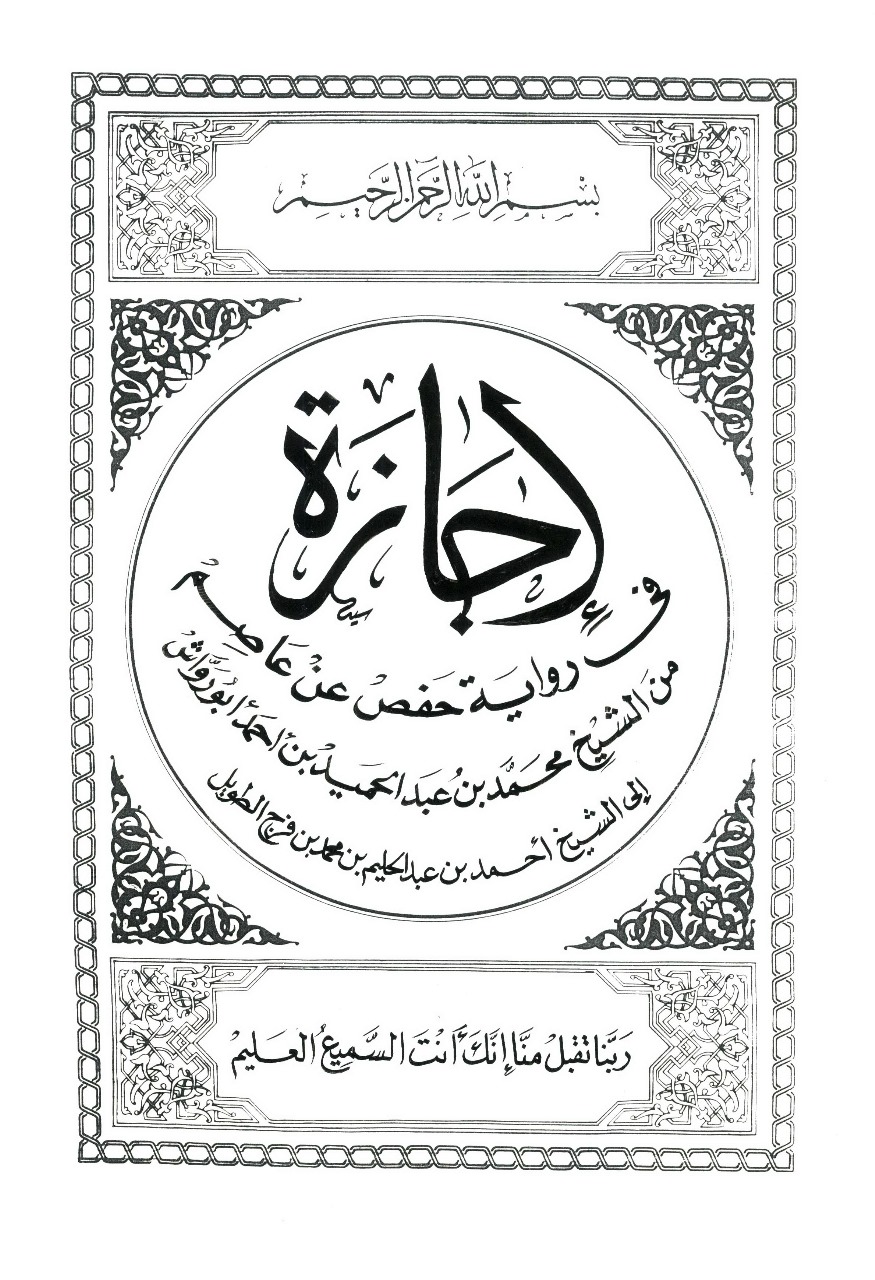 بسم الله الرحمن الرحيم
إجازة
في رواية حفص عن عاصم
من الشيخ محمد بن عبد الحميد بن احمد أبو روّاش
إلى الشيخ أحمد بن عبد الحليم بن محمد بن فرج الطويل
رَبَّنا تقبل منَّا إنَّكَ أَنْتَ السَّميعُ العَليمْ